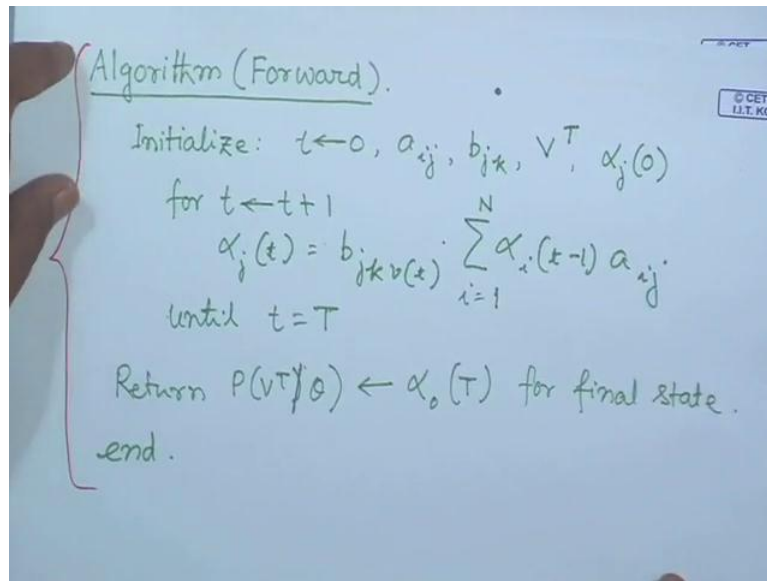 Algorithm (Forward).
Initialize: t←0, a_ij, b_jk, V^T, α_j(0)
for t←t+1
α_j(t) = b_jk v(t) ∑_{i=1}^{N} α_i(t-1) a_ij
until t=T
Return P(V^T/θ) ← α_0(T) for final state.
end.
© CET
I.I.T. KG